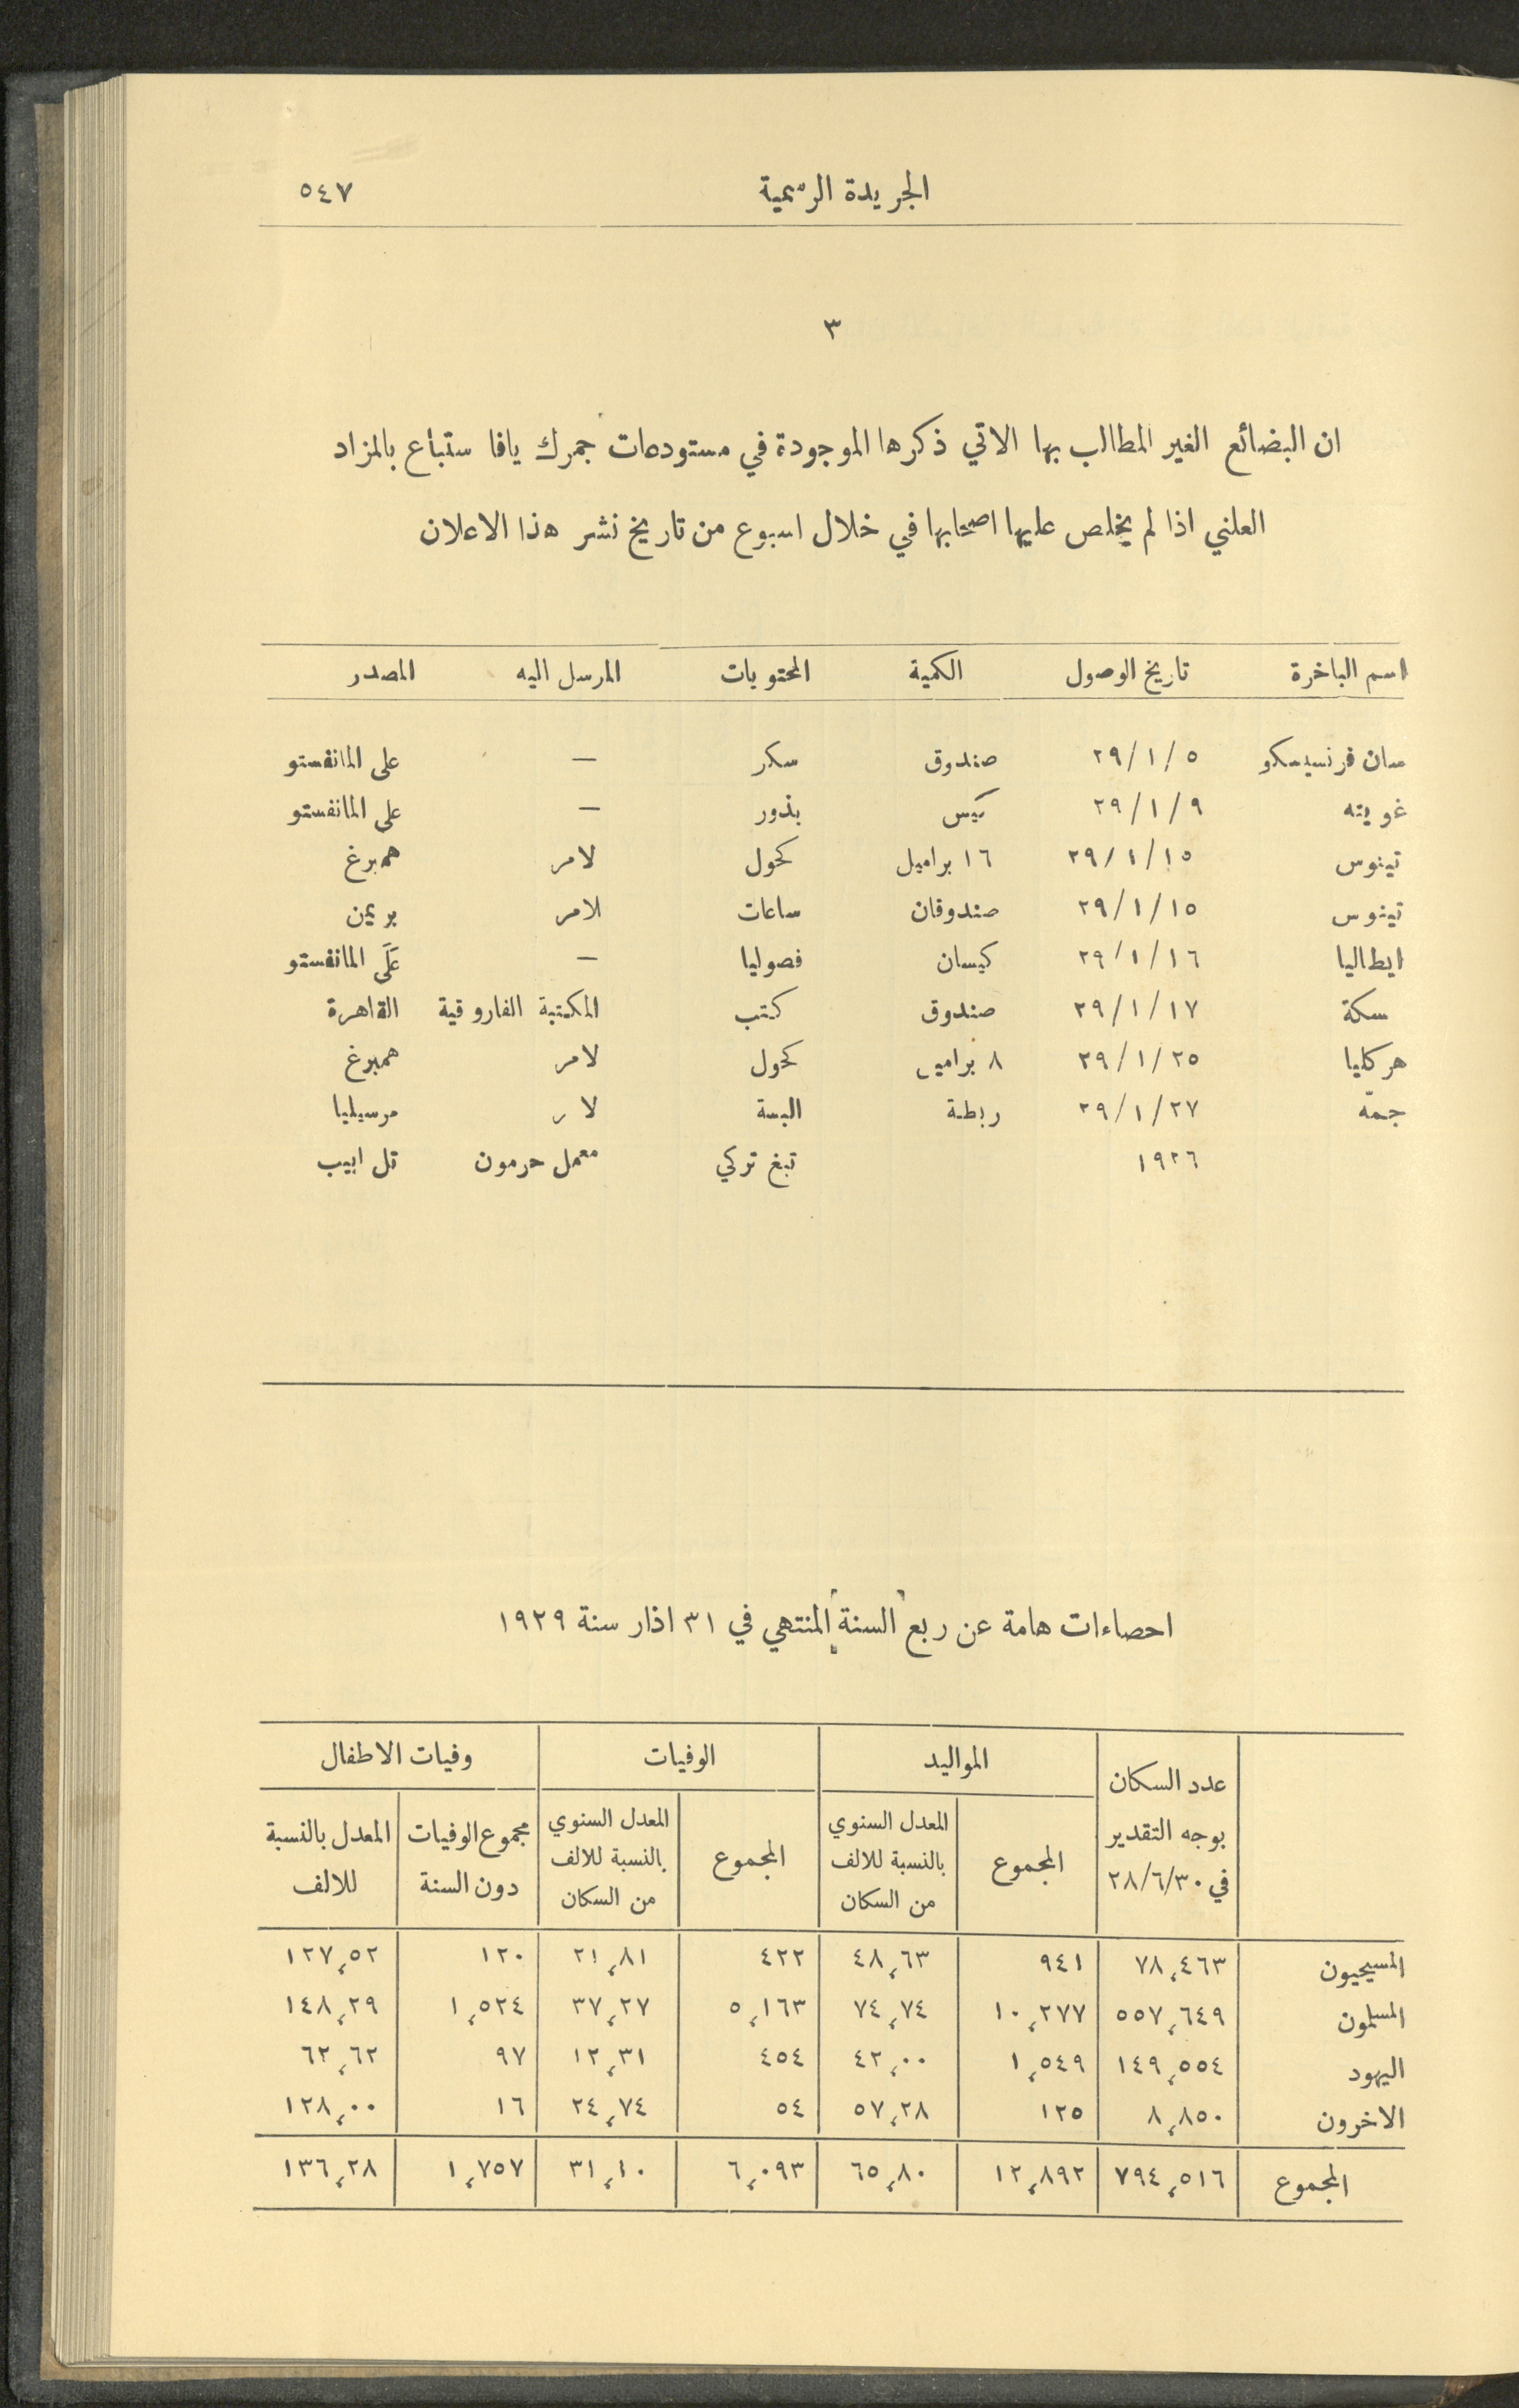 الجريدة الرسمية ٥٤٧
٣
ان البضائع الغير المطالب بها الاتي ذكرها الموجودة في مستودعات جمرك يافا ستباع بالمزاد
العلني اذا لم يخلص عليها اصحابها في خلال اسبوع من تاريخ نشر هذا الاعلان
اسم الباخرة تاريخ الوصول الكمية المحتويات المرسل اليه المصدر
سان فرنسيسكو ٢٩/١/٥ صندوق سكر — على المانفستو
غويته ٢٩/١/٩ كيس بذور — على المانفستو
تينوس ٢٩/١/١٥ ١٦ براميل كحول لامر همبرغ
تينوس ٢٩/١/١٥ صندوقان ساعات لامر بريمن
ايطاليا ٢٩/١/١٦ كيسان فصوليا — على المانفستو
سكة ٢٩/١/١٧ صندوق كتب المكتبة الفاروقية القاهرة
هركليا ٢٩/١/٢٥ ٨ براميل كحول لامر همبرغ
جمّه ٢٩/١/٢٧ ربطة البسة لامر مرسيليا
١٩٢٦ تبغ تركي معمل حرمون تل ابيب
احصاءات هامة عن ربع السنة المنتهي في ٣١ اذار سنة ١٩٢٩
عدد السكان المواليد الوفيات وفيات الاطفال
بوجه التقدير المجموع المعدل السنوي المجموع المعدل السنوي مجموع الوفيات المعدل بالنسبة
في ٢٨/٦/٣٠ بالنسبة للالف بالنسبة للالف دون السنة للالف
من السكان من السكان
المسيحيون ٧٨,٤٦٣ ٩٤١ ٤٨,٦٣ ٤٢٢ ٢١,٨١ ١٢٠ ١٢٧,٥٢
المسلمون ٥٥٧,٦٤٩ ١٠,٢٧٧ ٧٤,٧٤ ٥,١٦٣ ٣٧,٢٧ ١,٥٢٤ ١٤٨,٢٩
اليهود ١٤٩,٥٥٤ ١,٥٤٩ ٤٢,٠٠ ٤٥٤ ١٢,٣١ ٩٧ ٦٢,٦٢
الاخرون ٨,٨٥٠ ١٢٥ ٥٧,٢٨ ٥٤ ٢٤,٧٤ ١٦ ١٢٨,٠٠
المجموع ٧٩٤,٥١٦ ١٢,٨٩٢ ٦٥,٨٠ ٦,٠٩٣ ٣١,١٠ ١,٧٥٧ ١٣٦,٢٨